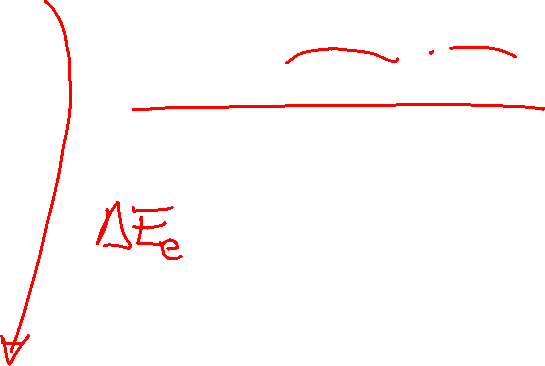 ΔEe